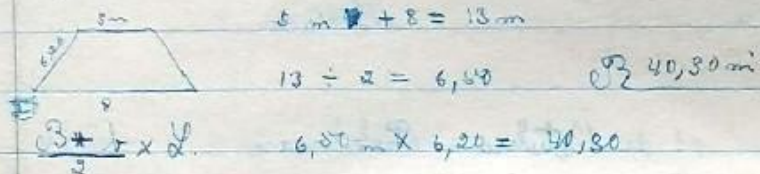 5 m
6,20
8
5 m + 8 = 13 m
13 ÷ 2 = 6,50
R 40,30 m
B + b / 2 × L.
6,50 m × 6,20 = 40,30